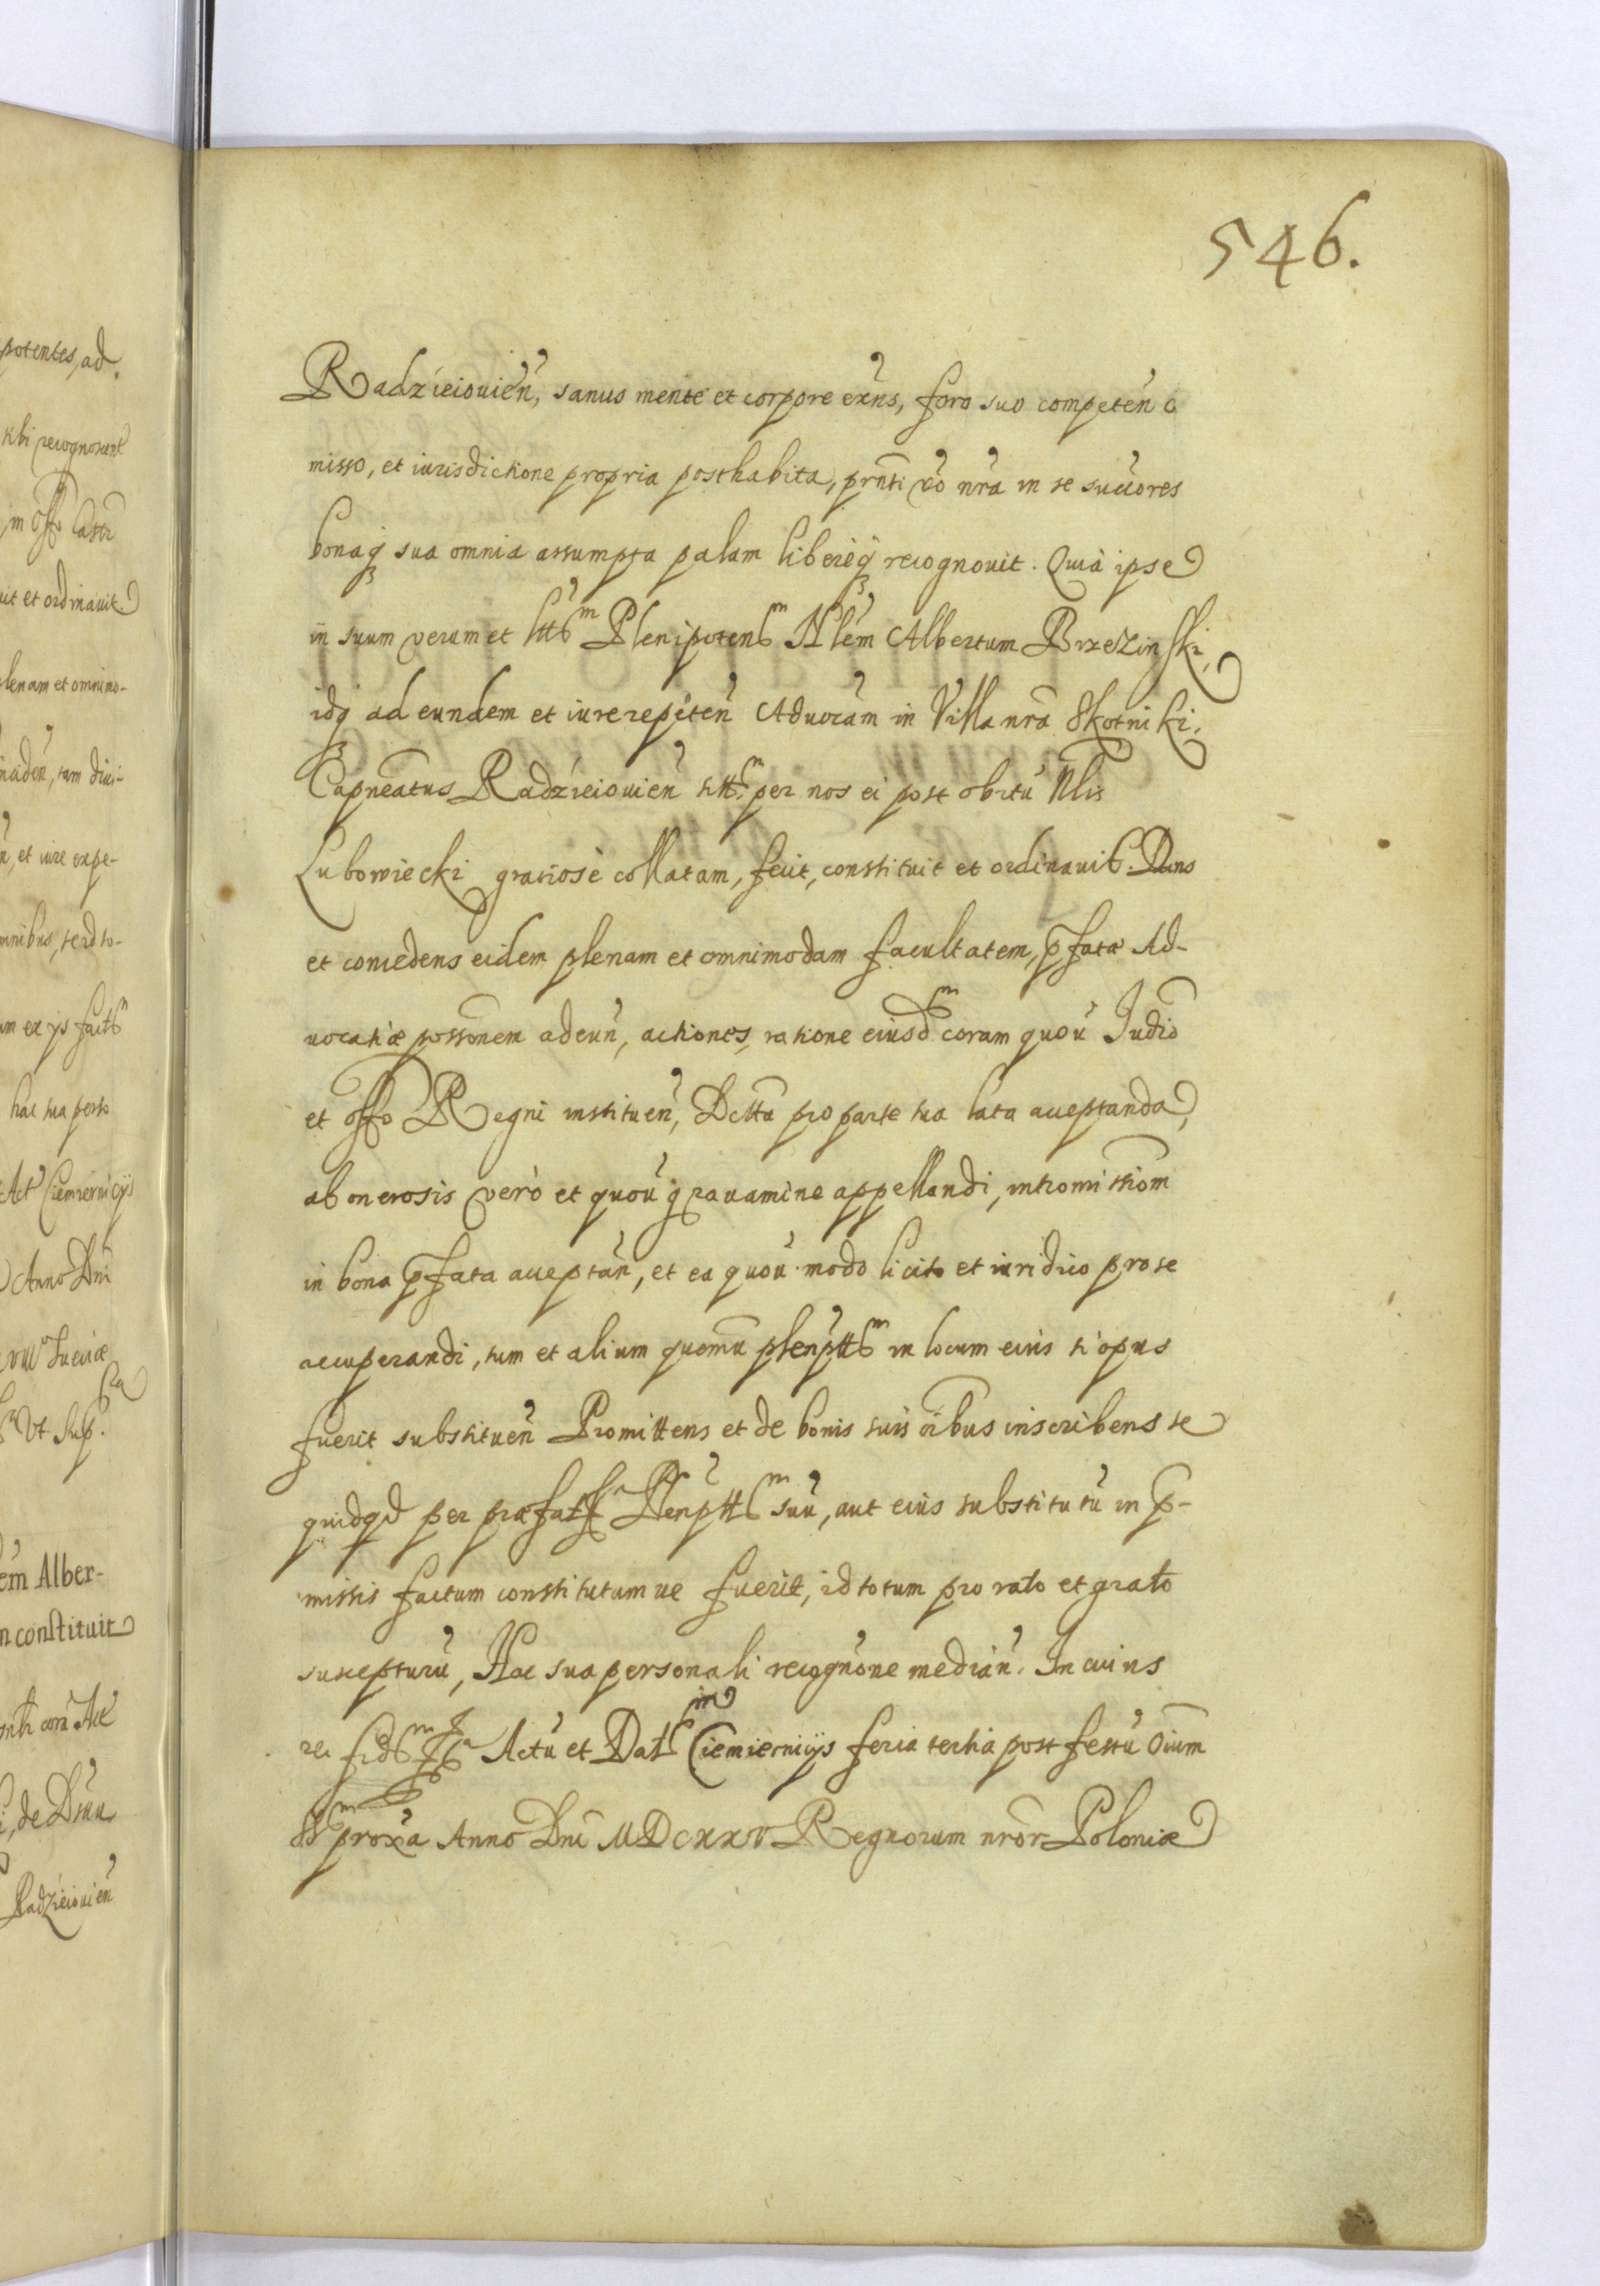 546.
potentes, ad
tibi recognoscent
in offo Castri
uit et ordinauit
plenam et omnimo-
tam diui-
et iure expe-
omnibus, sed so-
um ex ijs fact
hac sua perso
Act Ciemiernicijs
Anno Dni
Sueciæ
Vt sup.
em Alber-
n constituit
corā Act
de
Radzieiouien̄
Radzieiouien̄, sanus mente et corpore exn̄s, foro suo competen̄ o
misso, et iurisdictione propria posthabita, prn̄ti v̄o nrā in se sucōres
bonaq̨ sua omnia assumpta palam libereq̨ recognouit. Quià ipse
in suum verum et lttm Plenipotenm Nlēm Albertum Brzezinski,
idq̨ ad eundem et iure repeten̄ Aduocām in Villa nrā Skotniki,
Capneatus Radzieiouien̄ sitt.m per nos ei post obitū Nlis
Lubowiecki gratiosè collatam, fecit, constituit et ordinauit. Dans
et concedens eidem plenam et omnimodam facultatem, p̄fatæ Ad-
uocatiæ possonem adeun̄, actiones, ratione eiusdm coram quoū Judio
et offo Regni instituen̄, Decttā pro parte sua lata acceptanda,
ab onerosis verò et quoū grauamine appellandi, intromissiom
in bona p̄fata acceptān, et ea quoū modo licito et iuridico pro se
accuperandi, tum et alium quemū plenpttm in locum eius si opus
fuerit substituen̄ Promittens et de bonis suis oībus inscribens se
quidqd per præfat Plenpttm suū, aut eius substitutū in p̄-
missis factum constitutum ue fuerit, id totum pro rato et grato
suscepturū, Hac sua personali recogn̄one median̄. In cuius
rei fidm Actū et Datm Ciemiernicijs feria tertia post festū Oīum
SSm proxīa Anno Dni MDCXXV Regnorum nrōr Poloniæ